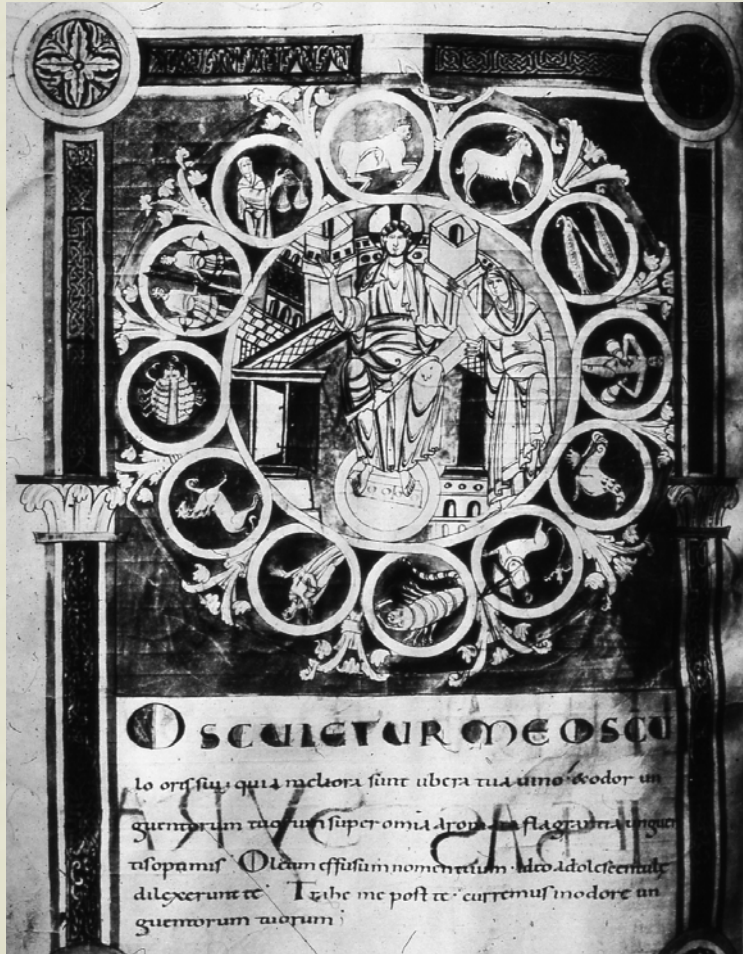 OSCULETUR ME OSCU
lo oris sui; quia meliora sunt ubera tua uino · & odor un
guentorum tuorum super omia aromata flagrantia unguen
tis optimis Oleum effusum nomen tuum · ideo adolescentulę
dilexerunt te · Trahe me post te · curremus in odore un
guentorum tuorum;